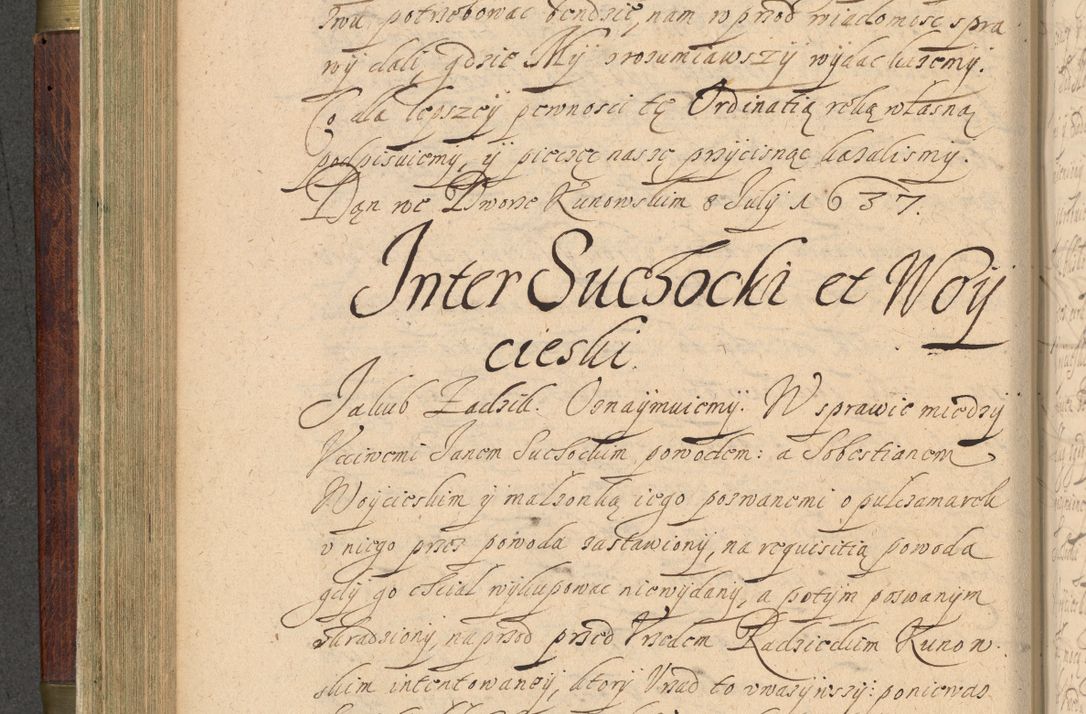 Twu potrzebowac bendzie, nam wprzod wiadomosc spra
wy dali, gdzie My zrozumiawszy wydac każemy.
Co dla lepszey pewnosci tę Ordinatią ręką własną
podpisuiemy, y pieczęc naszę przycisnąc kazalismy.
Dąn we Dworze Kunowskim 8 July 1637.
Inter Suchocki et Woy
cieski.
Jakub Zadzik. Oznaymuiemy. W sprawie miedzy
Vcciwemi Janem Suchockim powodem: a Sobestianem
Woycieskim y małzonką iego pozwanemi o pulczamarek
v niego przez powoda zastawiony, na requisitią powoda
gdy go chciał wykupowac niewydany, a potym pozwanym
skradziony, naprzod przed Vrzedem Radzieckim Kunow
skim intentowaney, ktory Vrzad to vwazywszy: poniewaz